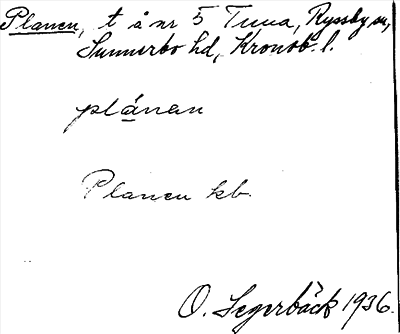 Planen, t å nr 5 Tuna, Ryssby sn,
Sunnerbo hd, Kronob. l.
plánan
Planen kb.
O. Segerbäck 1936.